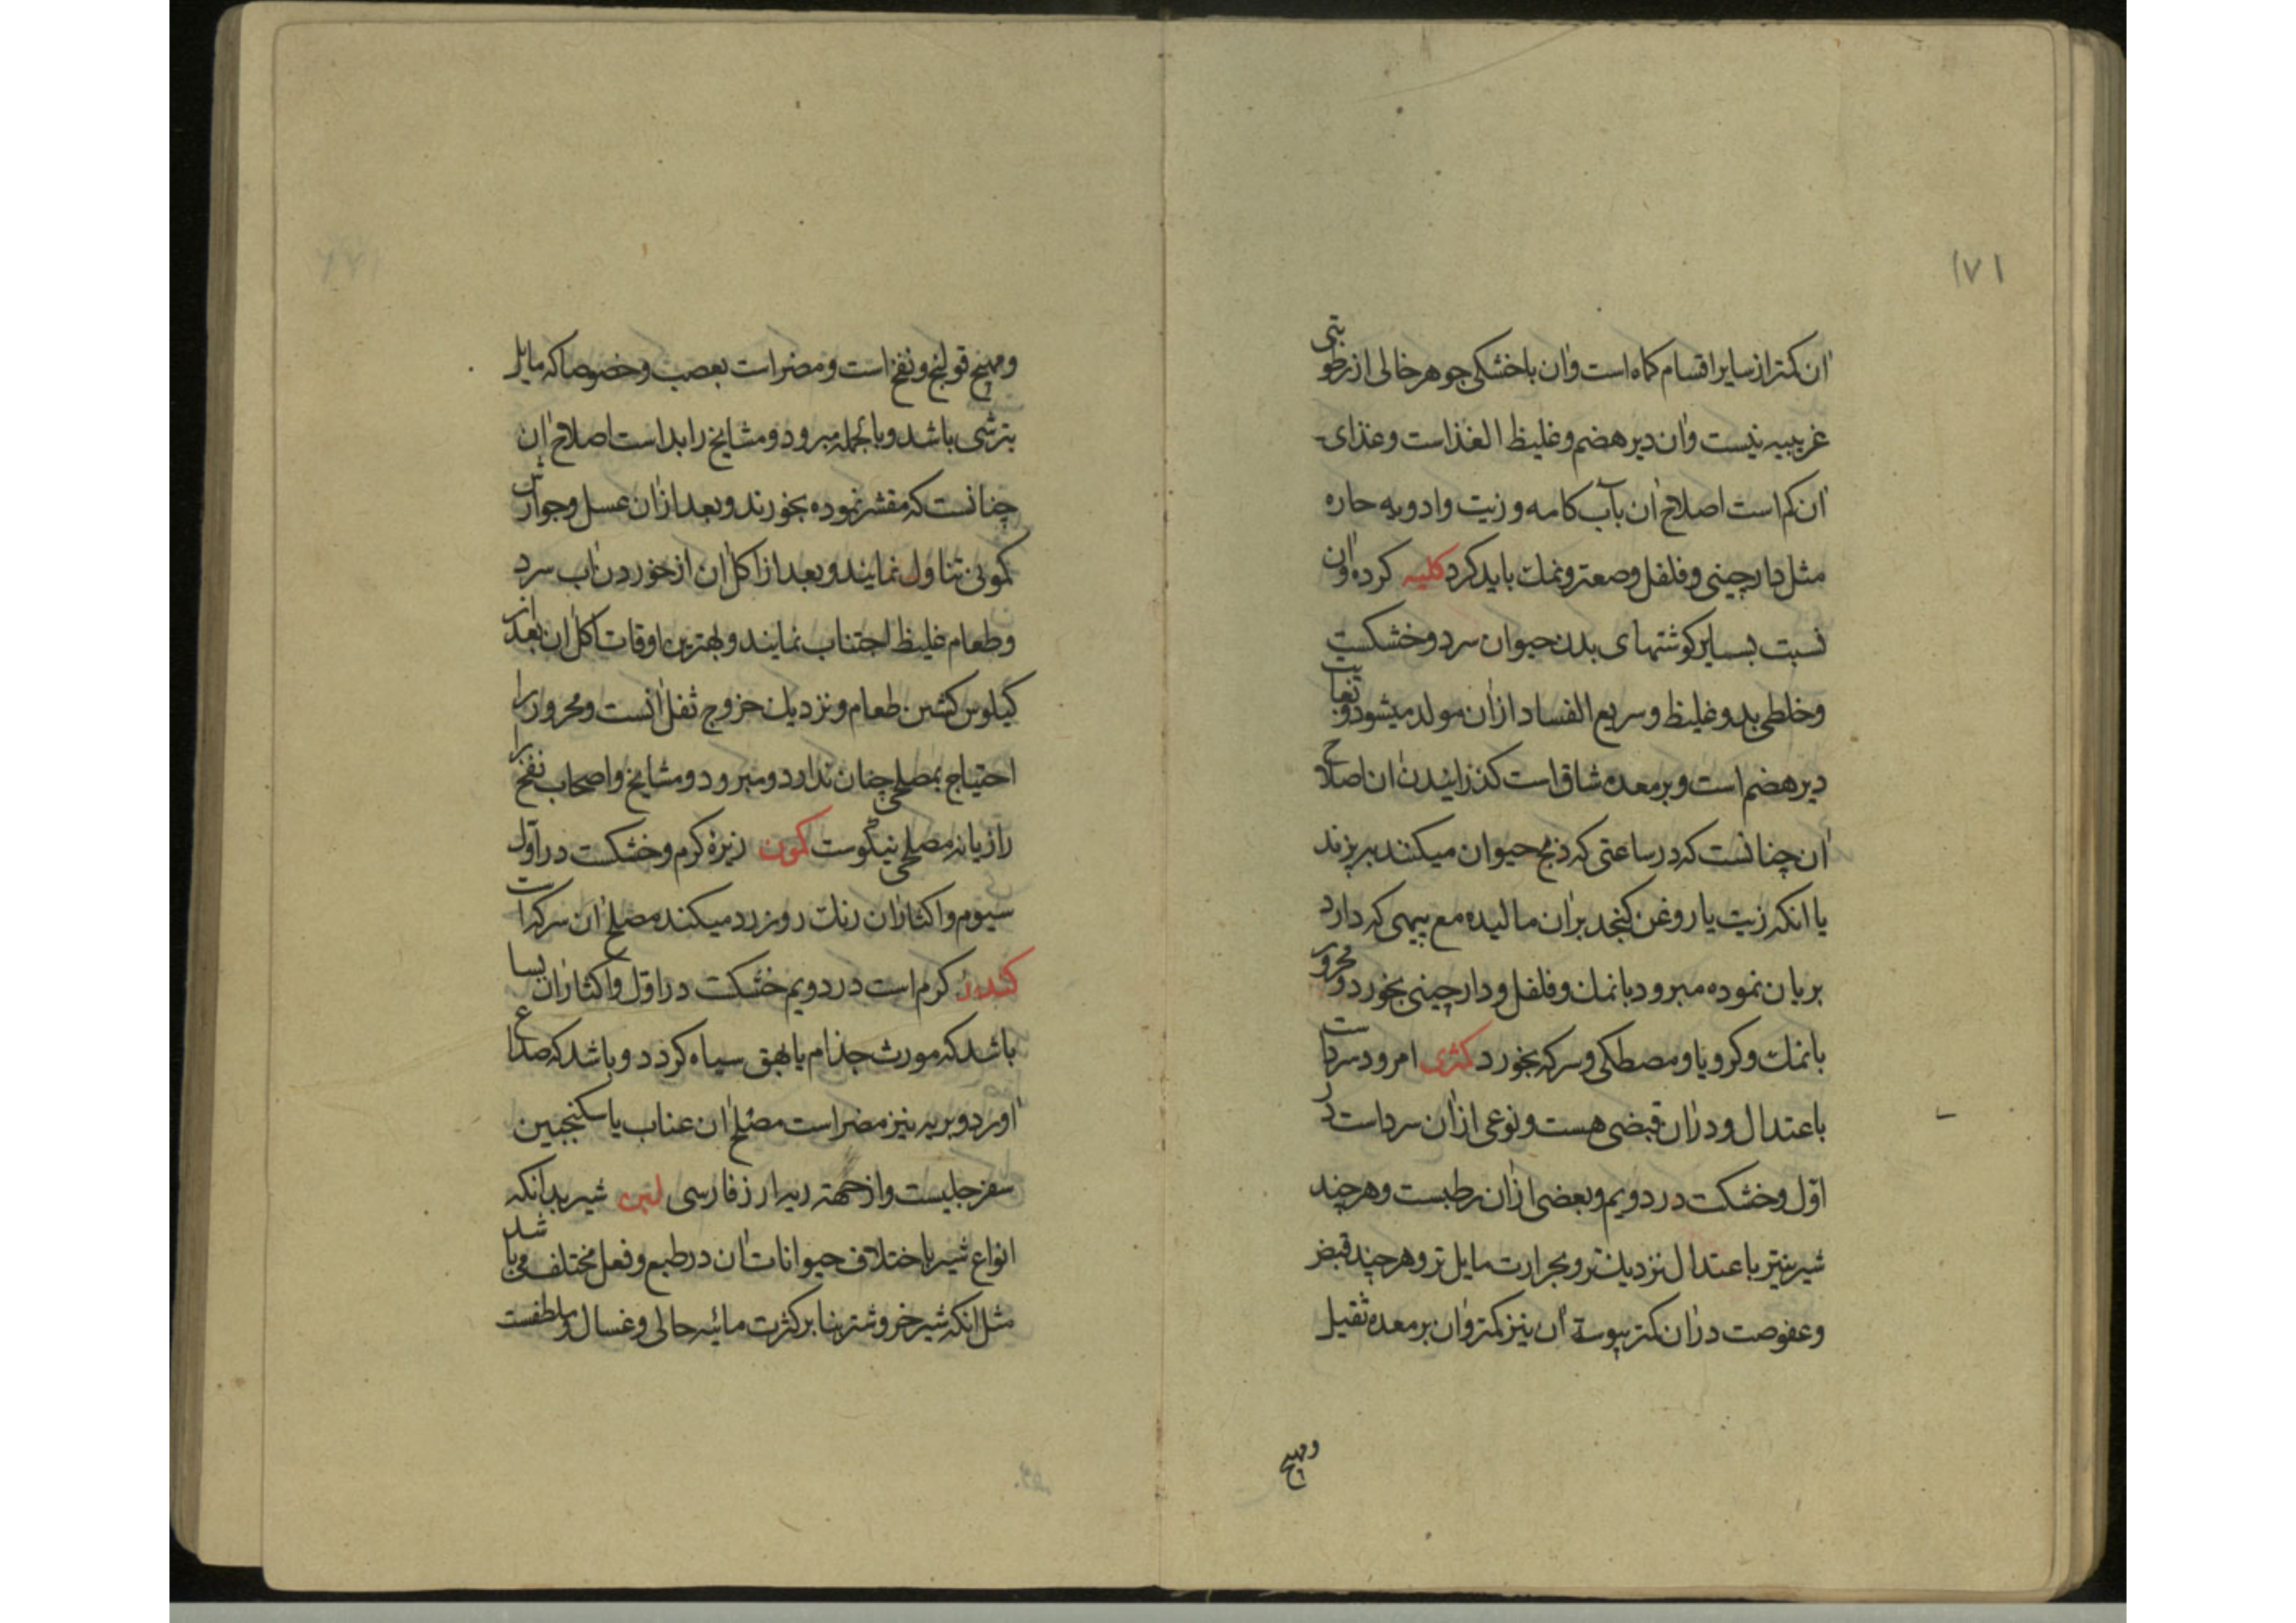 ۱۷۱
ان کمتر از سایر اقسام کماه است وان با خشکی جوهر خالی از رطوبتی
غریبیه نیست وان دیر هضم و غلیظ الغذاست وغذای
ان کم است اصلاح ان بآب کامه و زیت وادویه حاره
مثل دارچینی و فلفل وصعتر ونمک باید کرد کلیه کرده وان
نسبت بسایر کوشتهای بدن حیوان سرد وخشکست
وخلطی بد وغلیظ و سریع الفساد ازان مولد میشود وبغایت
دیر هضم است وبر معده شاق است کذرانیدن ان اصلاح
ان چنانست که در ساعتی که ذبح حیوان میکنند بپزند
یا انکه زیت یا روغن کنجد بران مالیده مع پیهی که دارد
بریان نموده مبرود بانمک وفلفل ودارچینی بخورد ومحرور
بانمک وکرویا ومصطکی وسرکه بخورد کمثری امرود سرد است
باعتدال ودران قبضی هست ونوعی ازان سرد است در
اول وخشکست در دویم وبعضی ازان رطبست وهرچند
شیرینتر باعتدال نزدیکتر وبحرارت مایل تر وهرچند قبض
وعفوصت دران کمتر یبوسة ان نیز کمتر وان بر معده ثقیل
ومهیج
ومهیج قولنج ونفخ است ومضر است بعصب وخصوصا که مایل
بترشی باشد وبالجمله مبرود ومشایخ را بد است اصلاح ان
چنانست که مقشر نموده بخورند وبعد ازان عسل وجوارش
کمونی تناول نمایند وبعد از اکل ان از خوردن اب سرد
وطعام غلیظ اجتناب نمایند وبهترین اوقات اکل ان بعد از
کیلوس کشتن طعام ونزدیک خروج ثفل انست ومحرور را
احتیاج بمصلحی چنان ندارد ومبرود ومشایخ واصحاب نفخ را
رازیانه مصلحی نیکوست کمون زیره کرم وخشکست در اول
سیوم واکثار ان رنک رو زرد میکند مصلح ان سرکه است
کندر کرم است در دویم خشکست در اول واکثار ان بسا
باشد که مورث جذام یا بهق سیاه کردد وباشد که صداع
اورد وبریه نیز مضر است مصلح ان عناب یا سکنجبین
سفرجلیست واز جهة ریه ارز فارسی لبن شیر بدانکه
انواع شیر باختلاف حیوانات ان در طبع وفعل مختلف می باشد
مثل انکه شیر خر وشتر بنا بر کثرت مائیه جالی وغسال وملطفست